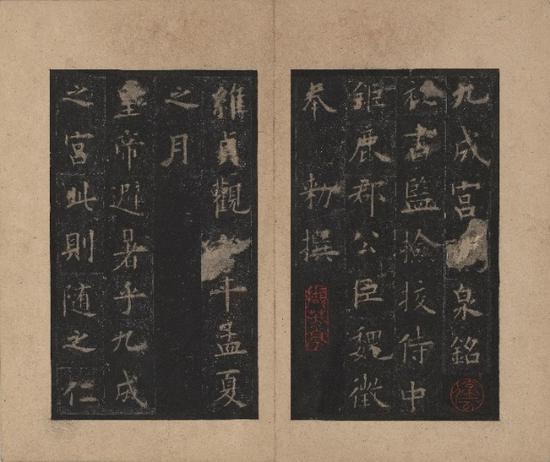 九成宮泉銘
秘書監撿挍侍中
鉅鹿郡公臣魏徵
奉 勅撰
維貞觀年孟夏
之月
皇帝避暑乎九成
之宮此則随之仁